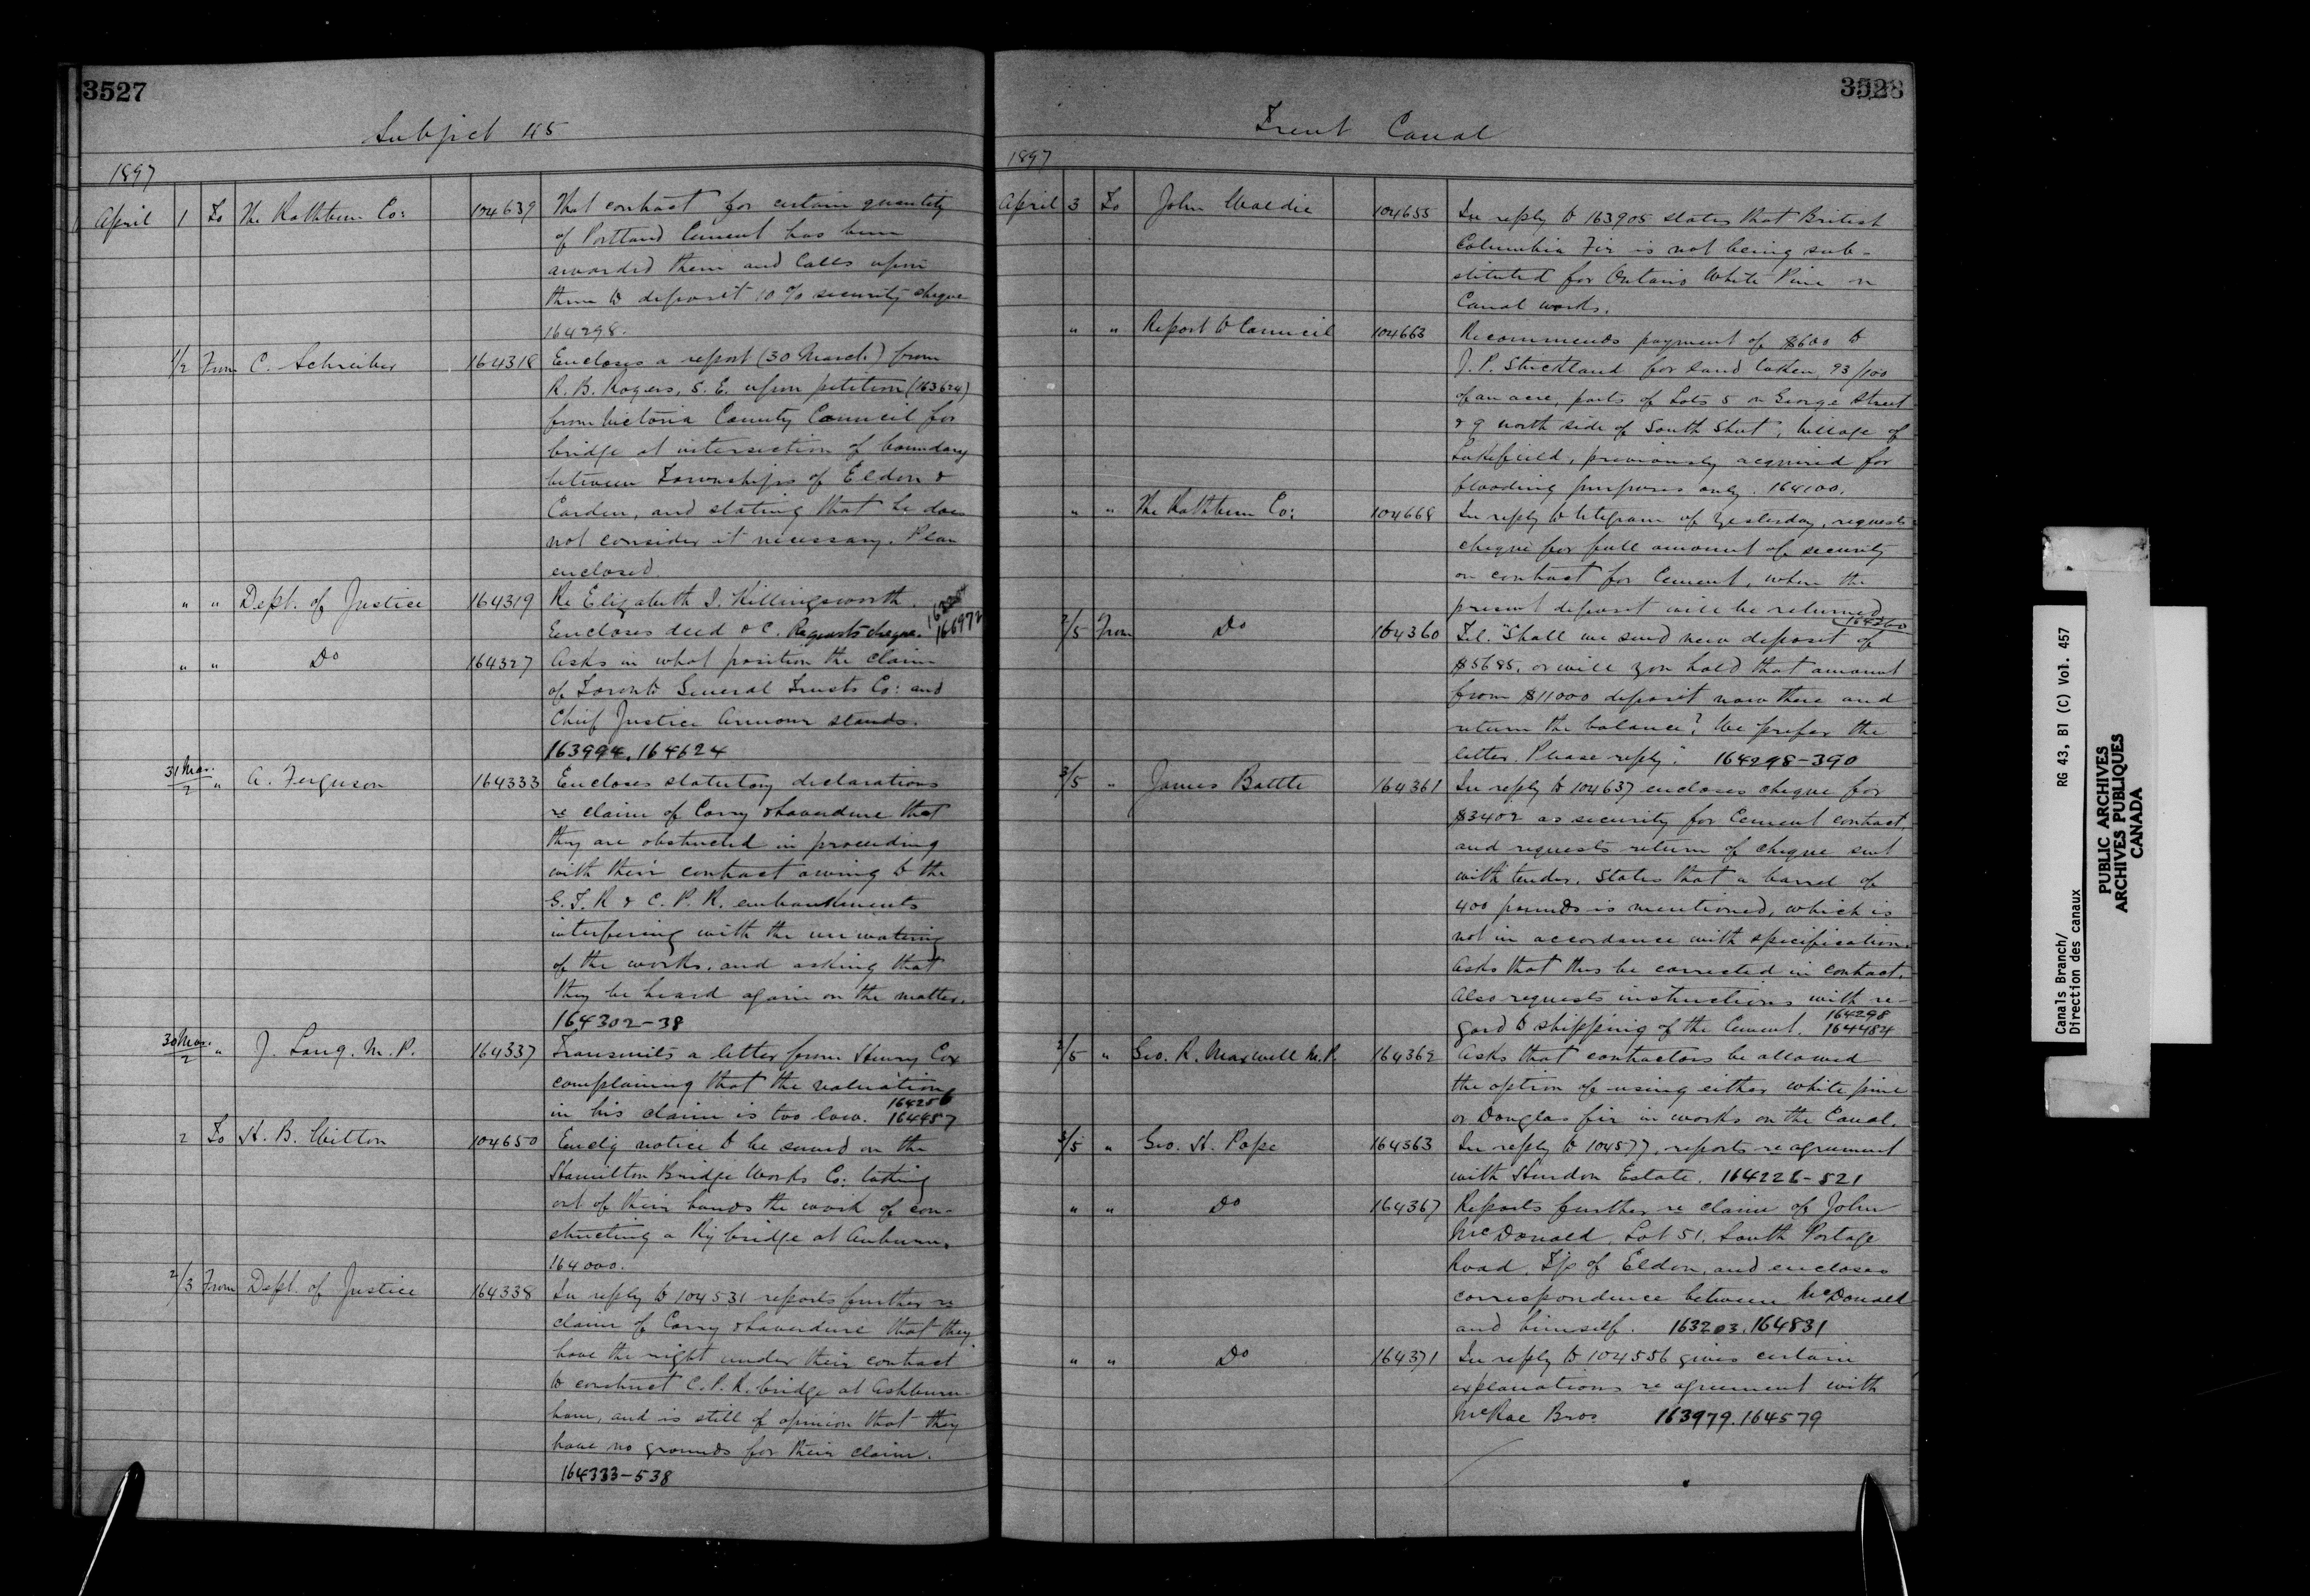 3527
Subject 115
1897
April 1 To The Rathbun Co: 104639 That contract for certain quantity
of Portland Cement has been
awarded them and Calls upon
them to deposit 10 % security cheque
164298.
1/2 From C. Schreiber 164318 Encloses a report (30 March) from
R. B. Rogers, S. E. upon petition (163624)
from Victoria County Council for
bridge at intersection of boundary
between Townships of Eldon &
Carden, and stating that he does
not consider it necessary. Plan
enclosed.
" " Dept. of Justice 164319 Re Elizabeth I. Killingsworth.
Encloses deed &c. Requests cheque. 166972
" " Do 164327 Asks in what position the claim
of Toronto General Trusts Co: and
Chief Justice Armour stands.
163994. 164624
31 Mar./2 " A. Ferguson 164333 Encloses statutory declarations
re claim of Corry & Laverdure that
they are obstructed in proceeding
with their contract owing to the
G. T. R & C. P. R. embankments
interfering with the unwatering
of the works, and asking that
they be heard again on the matter.
164302-38
30 Mar./2 " J. Lang. M. P. 164337 Transmits a letter from Henry Cox
complaining that the valuation
in his claim is too low. 164256 164457
2 To H. B. Witton 104650 Enclg notice to be served on the
Hamilton Bridge Works Co: taking
out of their hands the work of con-
structing a Ry bridge at Auburn.
164000.
2/3 From Dept. of Justice 164338 In reply to 104531 reports further re
claim of Corry & Laverdure that they
have the right under their contract
to construct C. P. R. bridge at Ashburn-
ham, and is still of opinion that they
have no grounds for their claim.
164333-538
3528
Trent Canal
1897
April 3 To John Waldie 104655 In reply to 163905 states that British
Columbia Fir is not being sub-
stituted for Ontario White Pine on
Canal works.
" " Report to Council 104663 Recommends payment of $600 to
J. P. Strickland for land taken, 93/100
of an acre, parts of Lots 5 on George Street
& 9 north side of South Street, Village of
Lakefield, previously acquired for
flooding purposes only. 164100.
" " The Rathbun Co: 104668 In reply to telegram of yesterday, requests
cheque for full amount of security
on contract for Cement, when the
present deposit will be returned
164360
2/5 From Do 164360 Tel. "Shall we send new deposit of
$5685, or will you hold that amount
from $11000 deposit now there and
return the balance? We prefer the
latter. Please reply." 164298-390
3/5 " James Battle 164361 In reply to 104637 encloses cheque for
$3402 as security for Cement contract,
and requests return of cheque sent
with tender. States that a barrel of
400 pounds is mentioned, which is
not in accordance with specification.
Asks that this be corrected in contract.
Also requests instructions with re-
gard to shipping of the Cement. 164298 164484
2/5 " Geo. R. Maxwell M.P. 164362 Asks that contractors be allowed
the option of using either white pine
or Douglas fir in works on the Canal.
3/5 " Geo. H. Pope 164363 In reply to 104577, reports re agreement
with Hurdon Estate. 164226-521
" " Do 164367 Reports further re claim of John
McDonald, Lot 51. South Portage
Road, T/p of Eldon, and encloses
correspondence between McDonald
and himself. 163203. 164831
" " Do 164371 In reply to 104556 gives certain
explanations re agreement with
McRae Bros 163979. 164579
Canals Branch/
Direction des canaux
RG 43, B1 (C) Vol. 457
PUBLIC ARCHIVES
ARCHIVES PUBLIQUES
CANADA